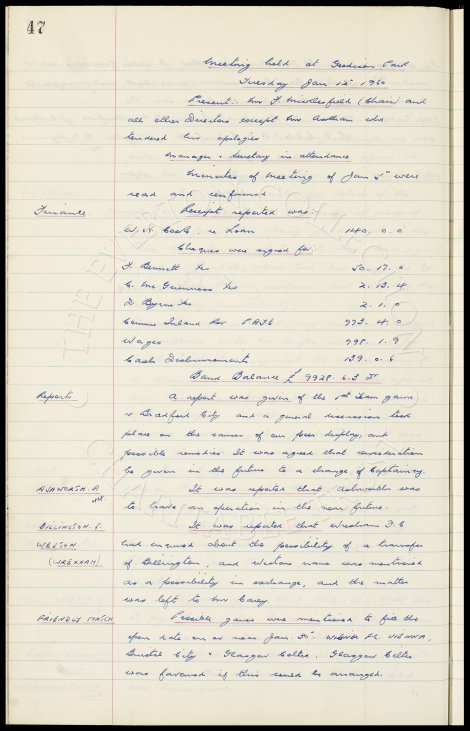 47
Meeting held at Goodison Park
Tuesday Jan 12th 1960
Present: Mr F. Micklesfield (Chair) and
all other Directors except Mr who
tendered his apologies
Manager & Secretary in attendance
Minutes of meeting of Jan 5th were
read and confirmed
Finance. Receipt reported was:-
W. H. Cooke. re Loan 140. 0. 0
Cheques were signed for:-
F. Bennett 50. 17. 0
C. Mc Guinness 2. 13. 4
D. Byrne 2. 1. 0
Comms Inland Rev P.A.Y.E. 773. 4. 0
Wages 798. 1. 9
Cash Disbursements 139. 0. 6
Bank Balance £ 9928. 6. 3
Reports A report was given of the 1st Team game
v Bradford City and a general discussion took
place on the causes of our poor display, and
possible remedies. It was agreed that consideration
be given in the future to a change of Captaincy.
ASHWORTH. A. It was reported that Ashworth was
to have an operation in the near future.
BILLINGTON. S. It was reported that Wrexham F.C
WESTON. had enquired about the possibility of a transfer
(WREXHAM) of Billington, and Westons name was mentioned
as a possibility in exchange, and the matter
was left to Mr Carey.
FRIENDLY MATCH Possible games were mentioned to fill the
open date on or near Jan. VIENNA,
Bristol City & Glasgow Celtic. Glasgow Celtic
was favoured if this could be arranged.
THE EVERTON COLLECTION